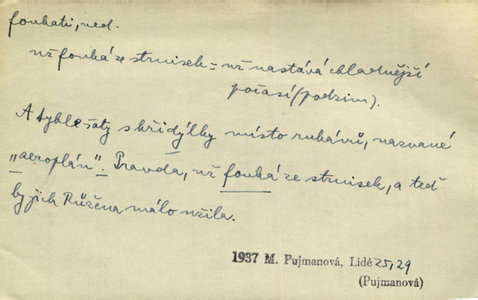 foukati, ned.
už fouká ze strnisek = už nastává chladnější
počasí (podzim).
A tyhle šaty s křidýlky místo rukávů, nazvané
„aeroplán". Pravda, už fouká ze strnisek, a teď
by jich Růžena málo užila.
1937 M. Pujmanová, Lidé 25,29
(Pujmanová)